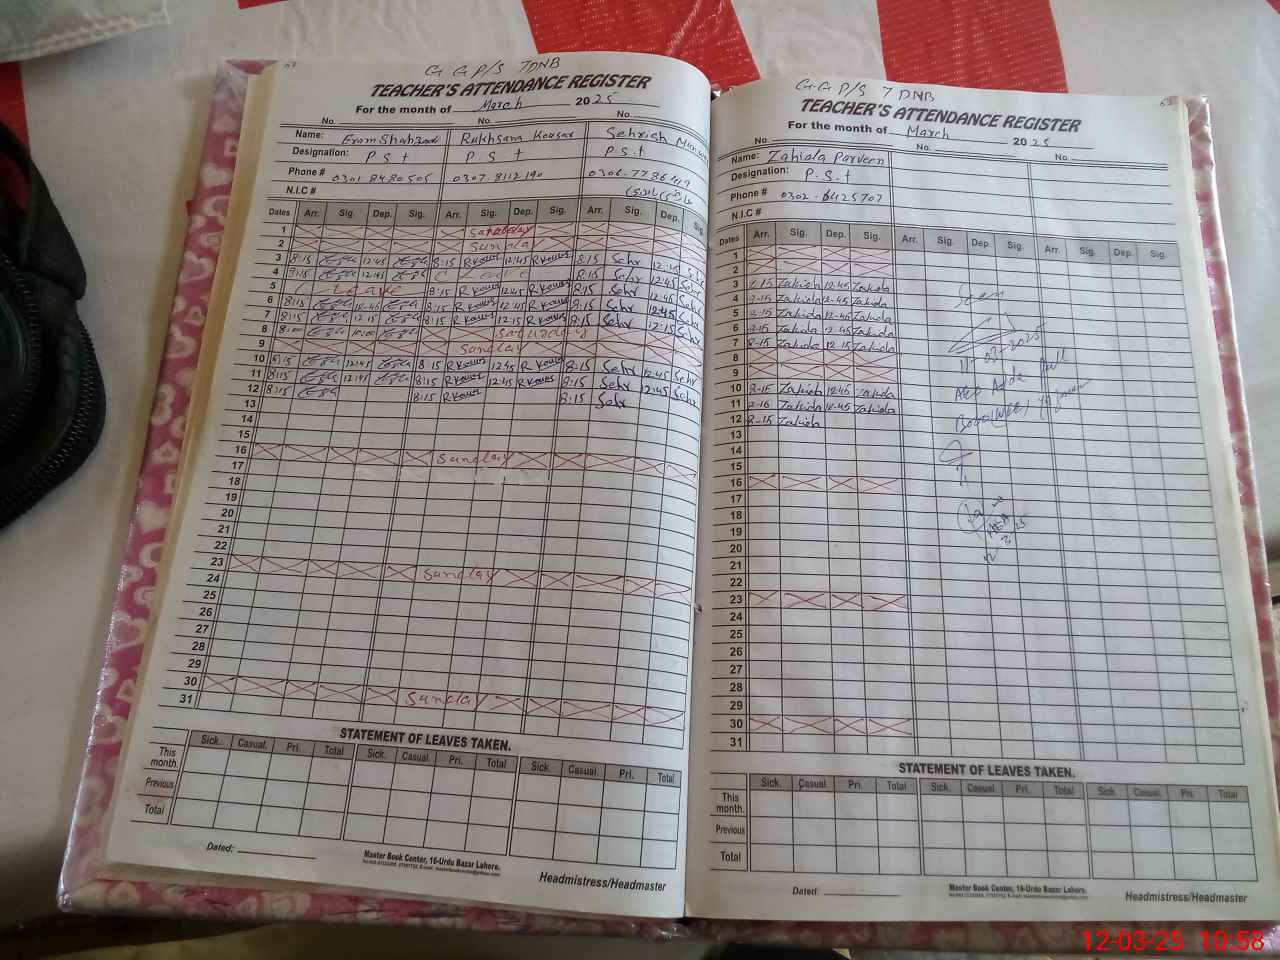 53
G G P/S 7DNB
TEACHER'S ATTENDANCE REGISTER
For the month of March 2025
No. No. No.
Name: Erum Shahzadi Rukhsana Kousar Sehrish
Designation: P.S.t P.S.t P.S.t
Phone # 0301 8480505 0307 8112190 0306-7786419
N.I.C #
Dates Arr. Sig. Dep. Sig. Arr. Sig. Dep. Sig. Arr. Sig. Dep. Sig.
1 Saturday
2 Sunday
3 8:15 12:45 8:15 R Kousar 12:45 R Kousar 8:15 Sehr 12:45 Sehr
4 8:15 12:45 C Leave 8:15 Sehr 12:45 Sehr
5 C Leave 8:15 R Kousar 12:45 R Kousar 8:15 Sehr 12:45 Sehr
6 8:15 12:45 8:15 R Kousar 12:45 R Kousar 8:15 Sehr 12:45 Sehr
7 8:15 12:15 8:15 R Kousar 12:15 R Kousar 8:15 Sehr 12:15 Sehr
8 Saturday
9 Sunday
10 8:15 12:45 8:15 R Kousar 12:45 R Kousar 8:15 Sehr 12:45 Sehr
11 8:15 12:45 8:15 R Kousar 12:45 R Kousar 8:15 Sehr 12:45 Sehr
12 8:15 8:15 R Kousar 8:15 Sehr
13
14
15
16 Sunday
17
18
19
20
21
22
23 Sunday
24
25
26
27
28
29
30 Sunday
31
STATEMENT OF LEAVES TAKEN.
Sick. Casual. Pri. Total Sick. Casual. Pri. Total Sick. Casual. Pri. Total
This month.
Previous
Total
Dated:
Master Book Center, 16-Urdu Bazar Lahore.
Headmistress/Headmaster
G G P/S 7 DNB
53
TEACHER'S ATTENDANCE REGISTER
For the month of March 2025
No. No. No.
Name: Zahida Parveen
Designation: P.S.t
Phone # 0302-6425707
N.I.C #
Dates Arr. Sig. Dep. Sig. Arr. Sig. Dep. Sig. Arr. Sig. Dep. Sig.
1
2
3 8-15 Zakida 12-45 Zakida
4 8-15 Zakida 12-45 Zakida
5 8-15 Zakida 12-45 Zakida
6 8-15 Zakida 12-45 Zakida
7 8-15 Zakida 12-15 Zakida
8
9
10 8-15 Zakida 12-45 Zakida
11 8-15 Zakida 12-45 Zakida
12 8-15 Zakida
13
14
15
16
17
18
19
20
21
22
23
24
25
26
27
28
29
30
31
Seen
11-03-2025
STATEMENT OF LEAVES TAKEN.
Sick. Casual Pri. Total Sick. Casual. Pri. Total Sick Casual. Pri. Total
This month.
Previous
Total
Dated:
Master Book Center, 16-Urdu Bazar Lahore.
Headmistress/Headmaster
12-03-25 10:58